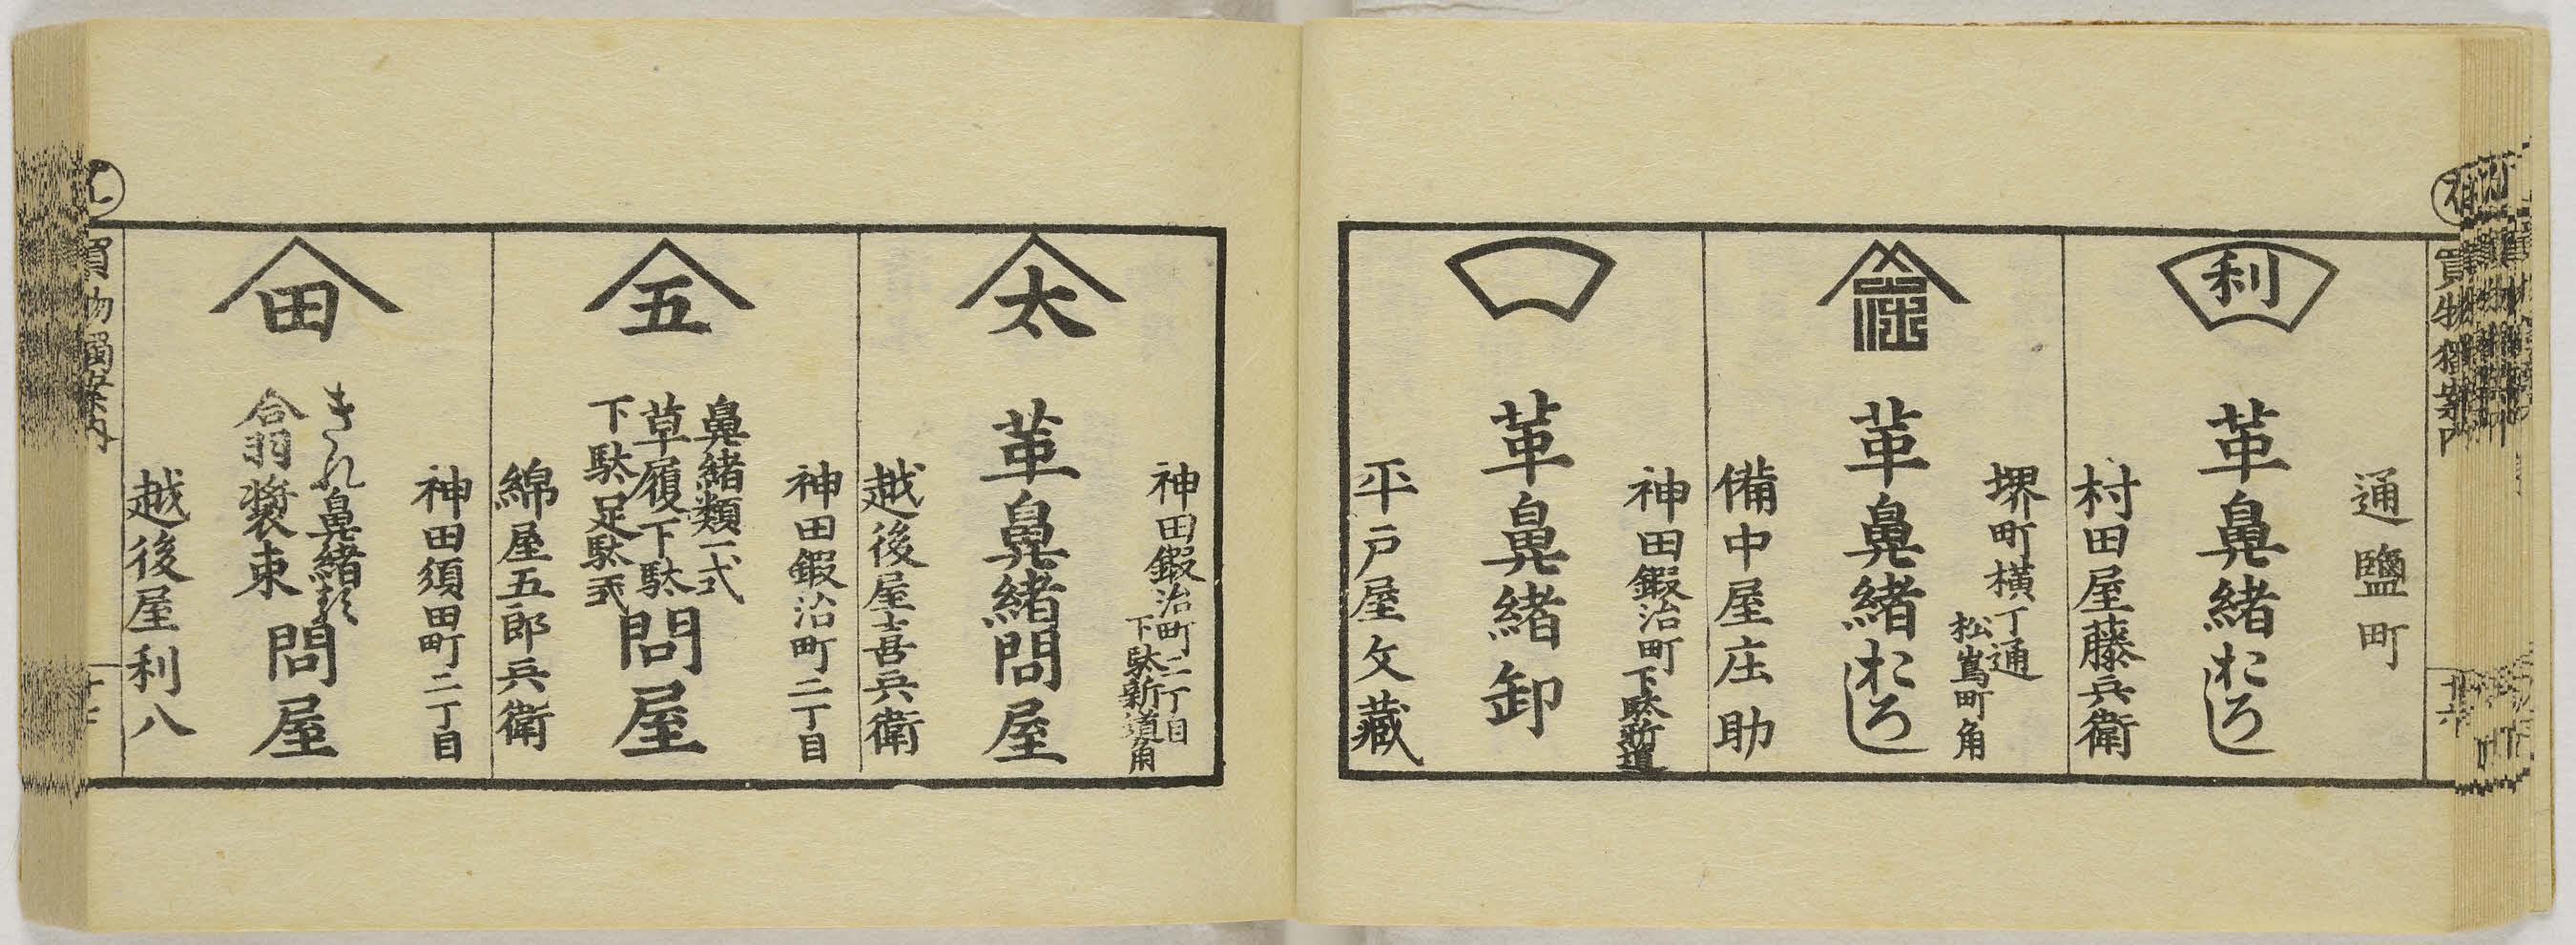 買物獨案内
通鹽町
利
革鼻緒おろし
村田屋藤兵衛
堺町横丁通
松嶌町角
革鼻緒おろし
備中屋庄助
神田鍜冶町下駄新道
革鼻緒卸
平戸屋文藏
神田鍜冶町二丁目
下駄新道角
太
革鼻緒問屋
越後屋吉兵衛
神田鍜冶町二丁目
五
鼻緒類一式
草履下駄
下駄足駄
問屋
綿屋五郎兵衛
神田須田町二丁目
田
きれ鼻緒
装束
問屋
越後屋利八
買物獨案内